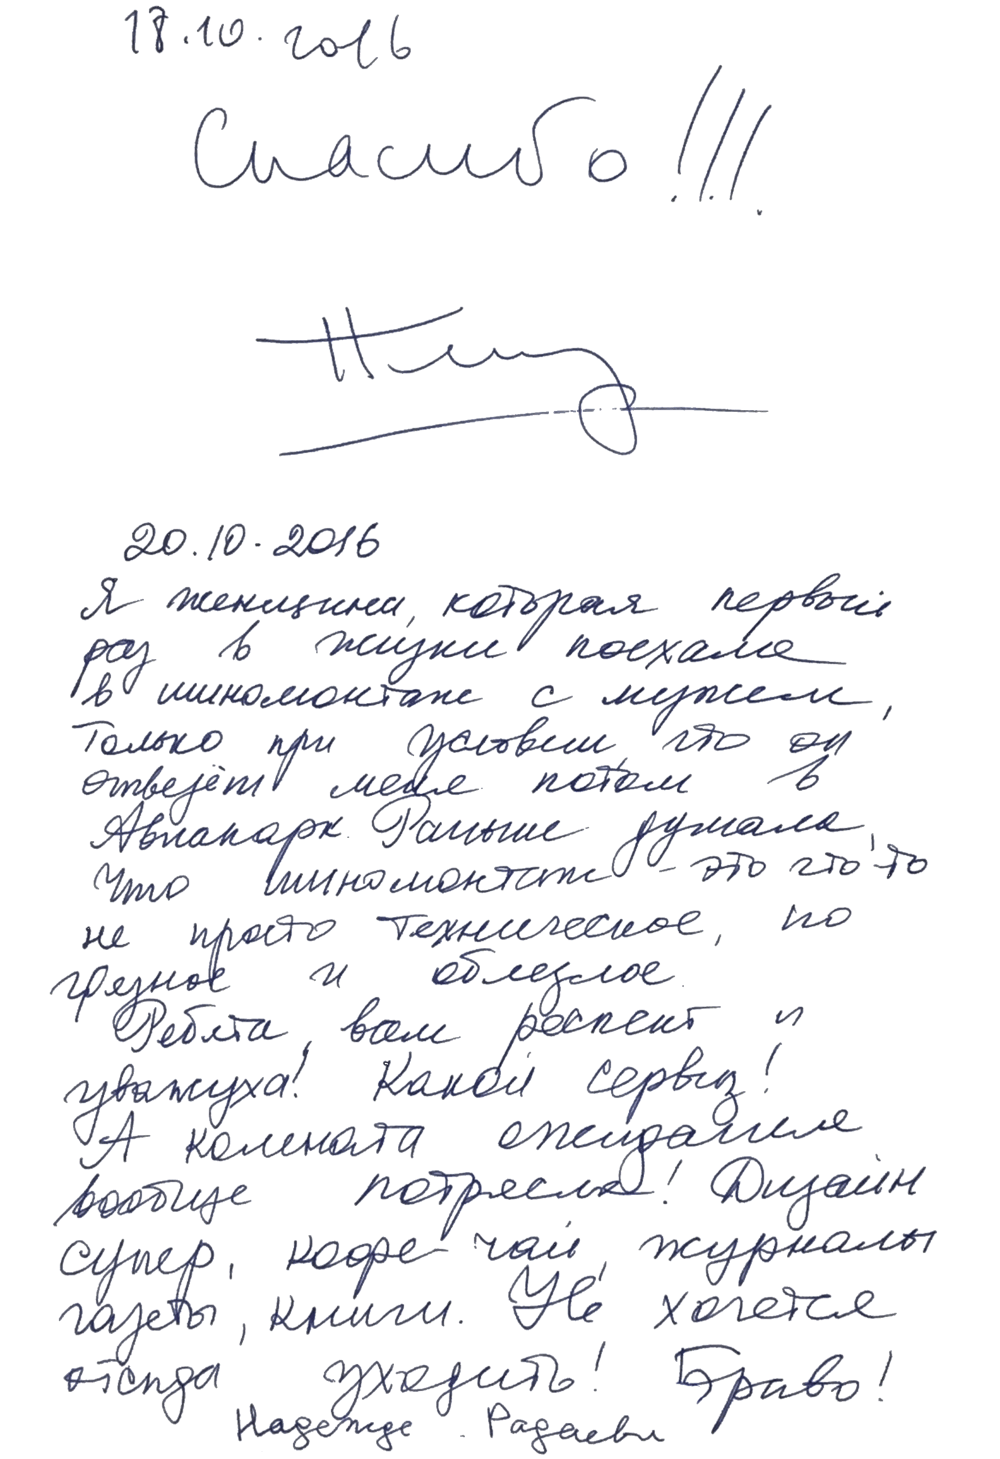 18.10.2016
Спасибо!!!
20.10.2016
Я женщина, которая первый
раз в жизни поехала
в шиномонтаж с мужем,
только при условии, что он
отвезёт меня потом в
Авиапарк. Раньше думала,
что шиномонтаж - это что-то
не просто техническое, но
грязное и облезлое.
Ребята, вам респект и
уважуха! Какой сервиз!
А комната ожидания
вообще потрясла! Дизайн
супер, кофе-чай, журналы
газеты, книги. Не хочется
отсюда уходить! Браво!
Надежда Радаева